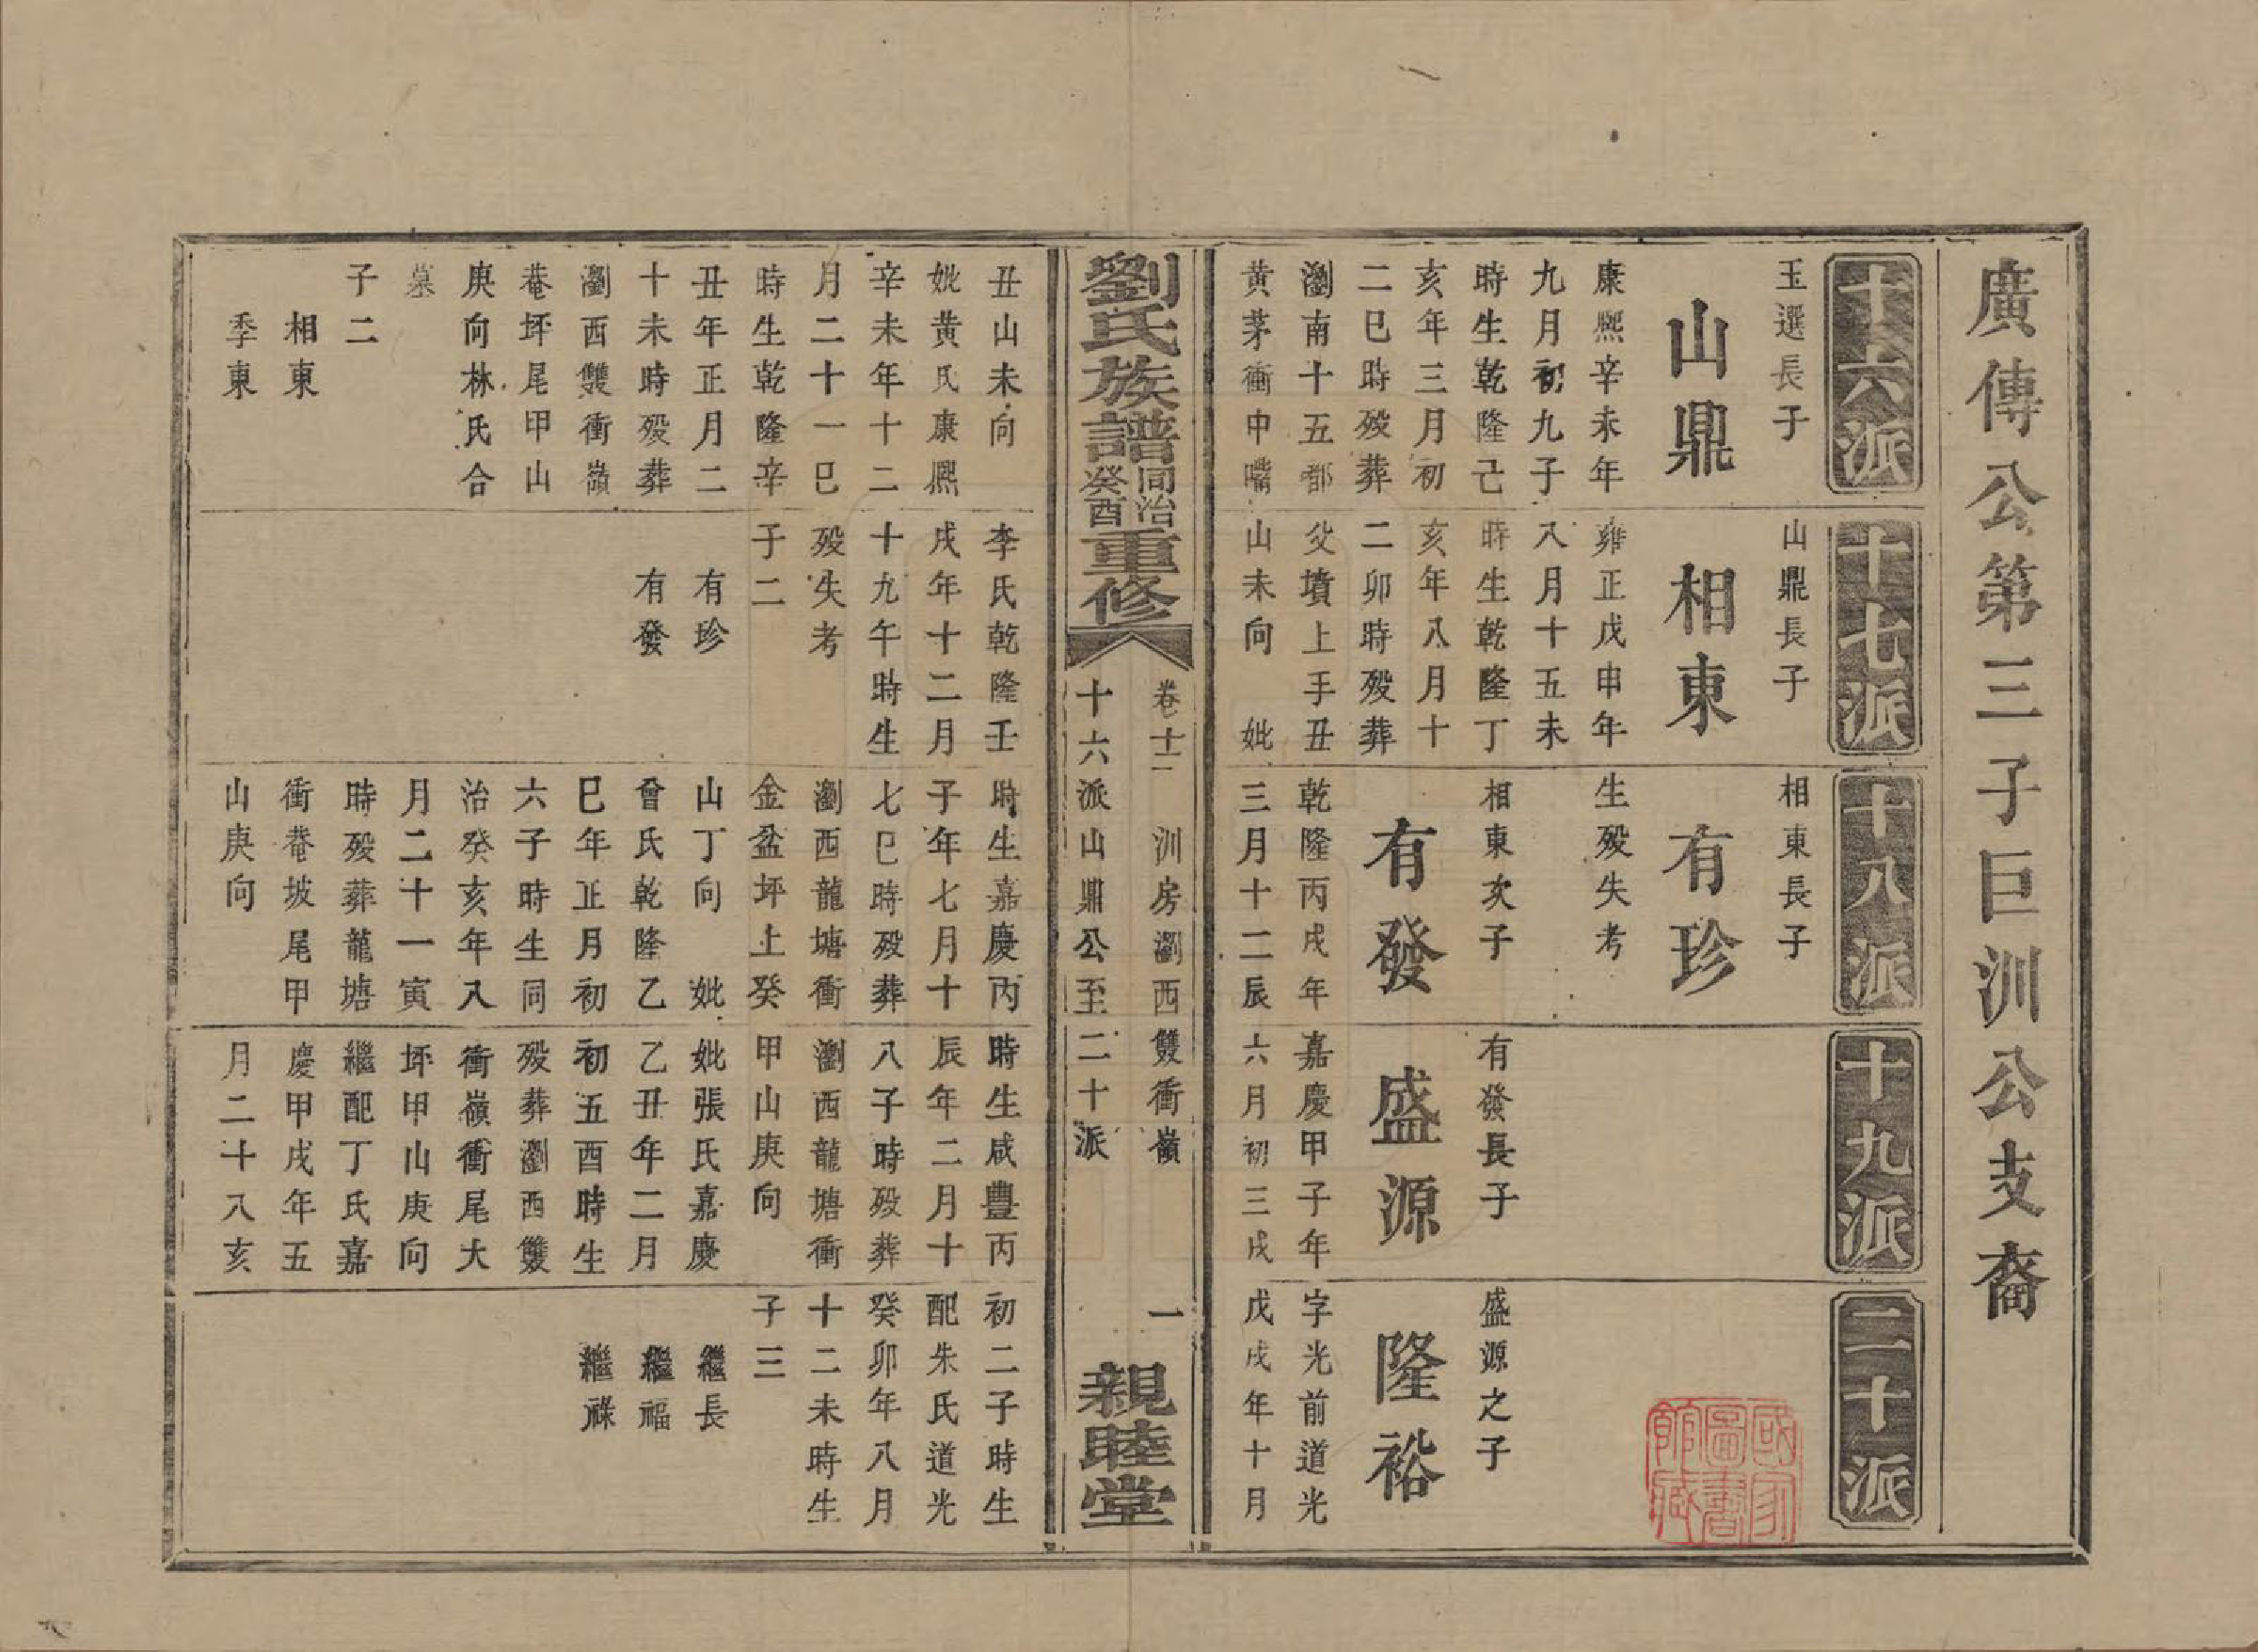 廣傳公第三子巨訓公支裔
十六派
玉選長子
山鼎
康熙辛未年
九月初九子
時生乾隆己
亥年三月初
二巳時歿葬
瀏南十五都
黃茅衝中嘴
十七派
山鼎長子
相東
雍正戊申年
八月十五未
時生乾隆丁
亥年八月十
二卯時歿葬
父墳上手丑
山未向 妣
十八派
相東長子
有珍
生歿失考
相東次子
有發
乾隆丙戌年
三月十二辰
十九派
有發長子
盛源
嘉慶甲子年
六月初三戌
二十派
盛源之子
隆裕
字光前道光
戊戌年十月
國家圖書館藏
劉氏族譜
同治
癸酉
重修
卷十二 訓房瀏西雙衝嶺 一
十六派山鼎公至二十派
親睦堂
丑山未向
妣黃氏康熙
辛未年十二
月二十一巳
時生乾隆辛
丑年正月二
十未時歿葬
瀏西雙衝嶺
菴坪尾甲山
庚向林氏合
墓
子二
相東
季東
李氏乾隆壬
戌年十二月
十九午時生
歿失考
子二
有珍
有發
時生嘉慶丙
子年七月十
七巳時歿葬
瀏西龍塘衝
金盆坪上癸
山丁向 妣
曾氏乾隆乙
巳年正月初
六子時生同
治癸亥年八
月二十一寅
時歿葬龍塘
衝菴坡尾甲
山庚向
時生咸豐丙
辰年二月十
八子時歿葬
瀏西龍塘衝
甲山庚向
妣張氏嘉慶
乙丑年二月
初五酉時生
歿葬瀏西雙
衝嶺衝尾大
坪甲山庚向
繼配丁氏嘉
慶甲戌年五
月二十八亥
初二子時生
配朱氏道光
癸卯年八月
十二未時生
子三
繼長
繼福
繼祿